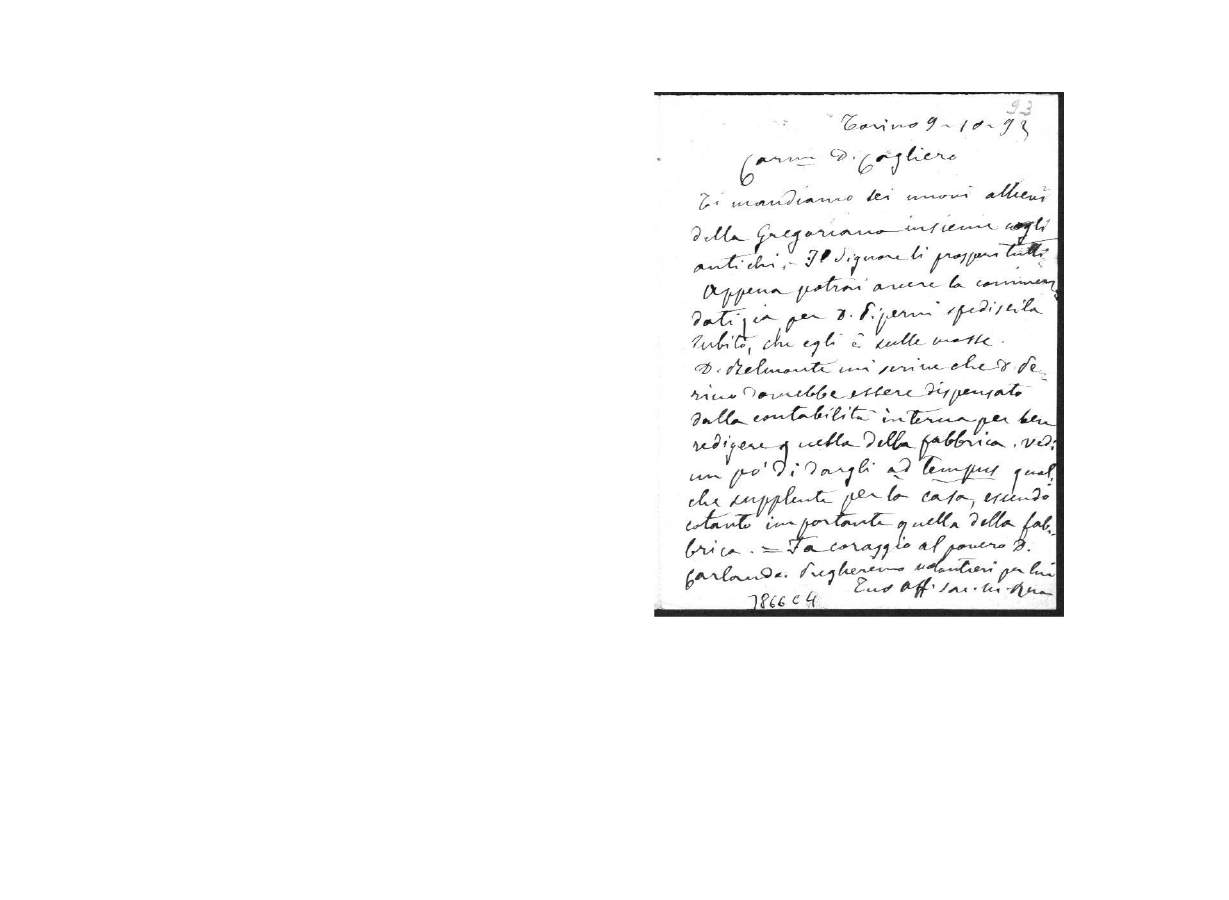 93
Torino 9-10-93
Carmo D. Cagliero
Ti mandiamo sei nuovi allievi
della Gregoriana insieme cogli
antichi. Il Signore li prosperi tutti
Appena potrai avere la commen
datizia per D. Piperni spediscila
subito, che egli è sulle mosse.
D. Belmonte mi scrive che D. Pe-
rino dovrebbe essere dispensato
dalla contabilità interna per ben
redigere quella della fabbrica. Vedi
un po' di dargli ad tempus qual,
che supplente per la casa, essendo
cotanto importante quella della fab-
brica. = Fa coraggio al povero D.
Garlanda. Pregheremo volontieri per lui
Tuo aff. Sac. M. Rua
3866 C 4